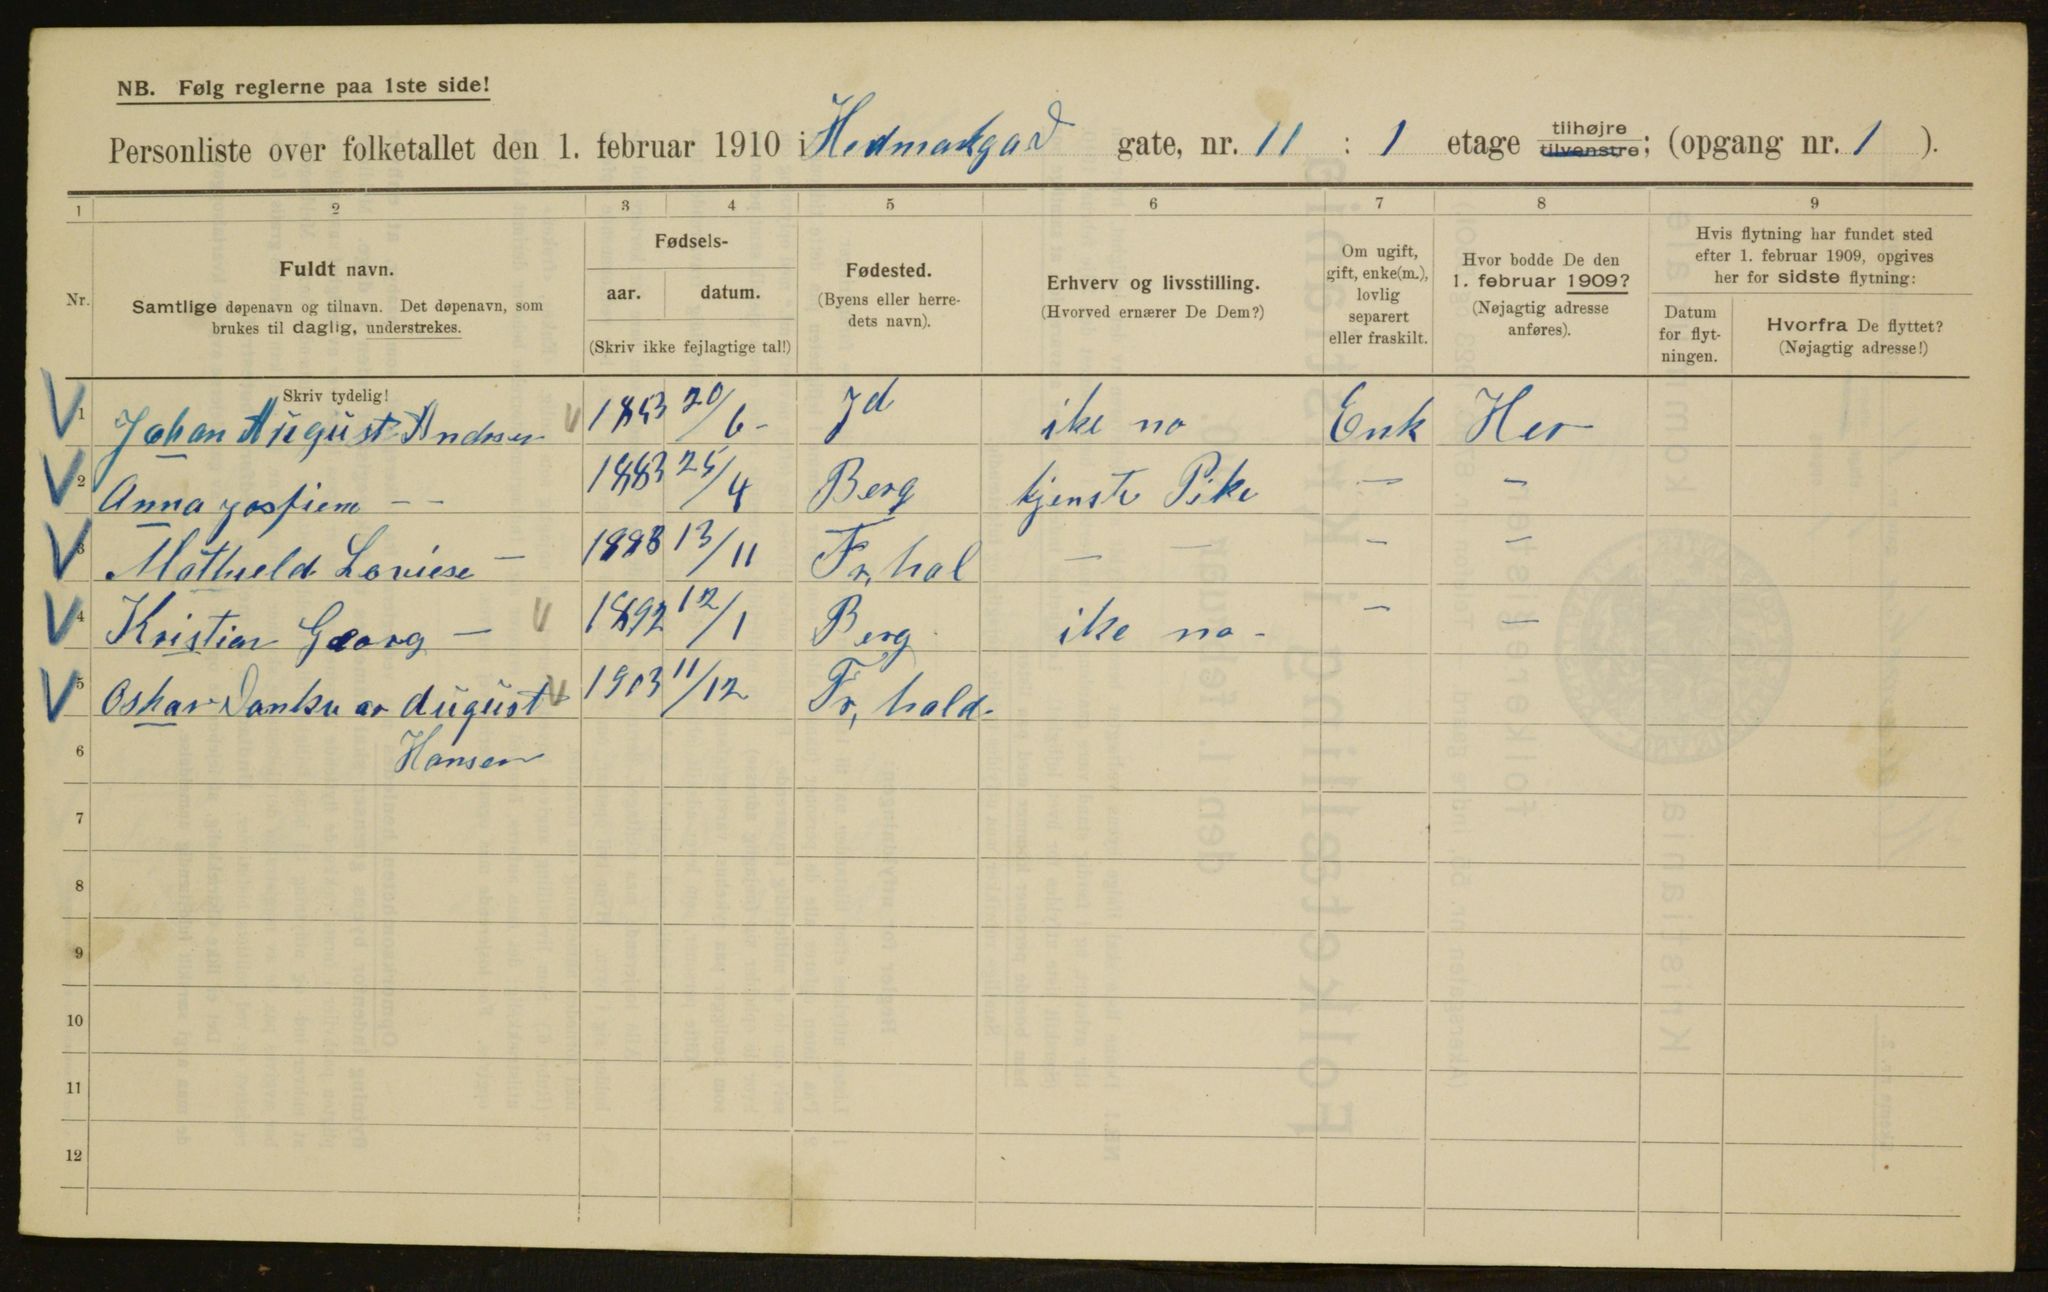 NB. Følg reglerne paa 1ste side!
Personliste over folketallet den 1. februar 1910 i Hedmarkgad gate, nr. 11 : 1 etage tilhøjre tilvenstre; (opgang nr. 1 ).
1 2 3 4 5 6 7 8 9
Nr.
Fuldt navn.
Samtlige døpenavn og tilnavn. Det døpenavn, som
brukes til daglig, understrekes.
Fødsels-
aar. datum.
(Skriv ikke fejlagtige tal!)
Fødested.
(Byens eller herre-
dets navn).
Erhverv og livsstilling.
(Hvorved ernærer De Dem?)
Om ugift,
gift, enke(m.),
lovlig
separert
eller fraskilt.
Hvor bodde De den
1. februar 1909?
(Nøjagtig adresse
anføres).
Hvis flytning har fundet sted
efter 1. februar 1909, opgives
her for sidste flytning:
Datum
for flyt-
ningen.
Hvorfra De flyttet?
(Nøjagtig adresse!)
Skriv tydelig!
1 Johan August Andsen 1853 20/6 - Id ike no Enk Her
2 Anna josfiene - - 1883 25/4 Berg tjenste Pike - -
3 Mathield Loviese - 1888 13/11 Fr, hal - - - -
4 Kristian Georg - 1892 12/1 Berg ike no - - -
5 Oskar August 1903 11/12 Fr, hald-
6 Hansen
7
8
9
10
11
12